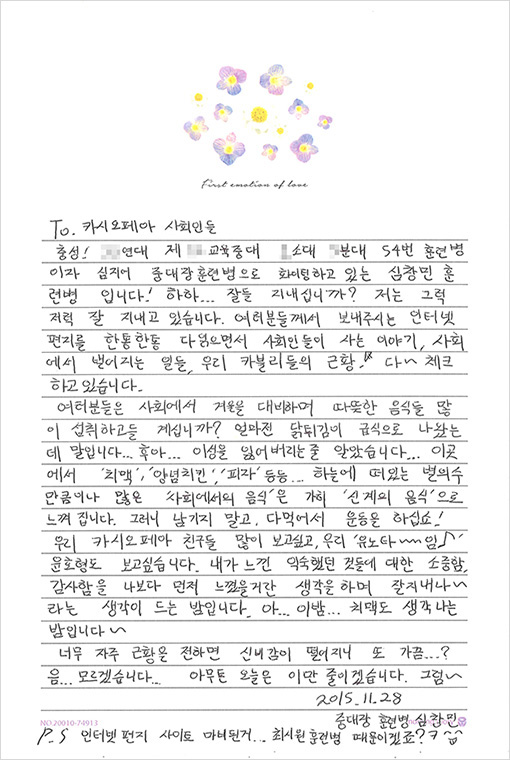 First emotion of love
To. 카시오페아 사회인들
충성! 연대 제 교육중대 소대 분대 54번 훈련병
이자 심지어 중대장훈련병으로 화이팅하고 있는 심창민 훈
련병 입니다! 하하... 잘들 지내십니까? 저는 그럭
저럭 잘 지내고 있습니다. 여러분들께서 보내주시는 인터넷
편지를 한통한통 다읽으면서 사회인들이 사는 이야기, 사회
에서 벌어지는 일들, 우리 카블리들의 근황! 다~ 체크
하고있습니다.
여러분들은 사회에서 겨울을 대비하며 따뜻한 음식들 많
이 섭취하고들 계십니까? 얼마전 닭튀김이 급식으로 나왔는
데 말입니다... 후아... 이성을 잃어버리는줄 알았습니다... 이곳
에서 '치맥', '양념치킨', '피자' 등등... 하늘에 떠있는 별의수
만큼이나 많은 '사회에서의 음식'은 가히 '신계의 음식'으로
느껴집니다. 그러니 남기지 말고, 다먹어서 운동을 하십쇼!
우리 카시오페아 친구들 많이 보고싶고, 우리 '유노타~임♪'
윤호형도 보고싶습니다. 내가 느낀 익숙했던 것들에 대한 소중함,
감사함을 나보다 먼저 느꼈을거란 생각을 하며 잘지내나~
라는 생각이 드는 밤입니다. 아... 이밤... 치맥도 생각나는
밤입니다~
너무 자주 근황을 전하면 신비감이 떨어지니 또 가끔...?
음... 모르겠습니다... 아무튼 오늘은 이만 줄이겠습니다. 그럼~
2015.11.28
중대장 훈련병 심창민
NO.20010-74913
P.S 인터넷편지 사이트 마비된거... 최시원훈련병 때문이겠죠? ㅋ ^^